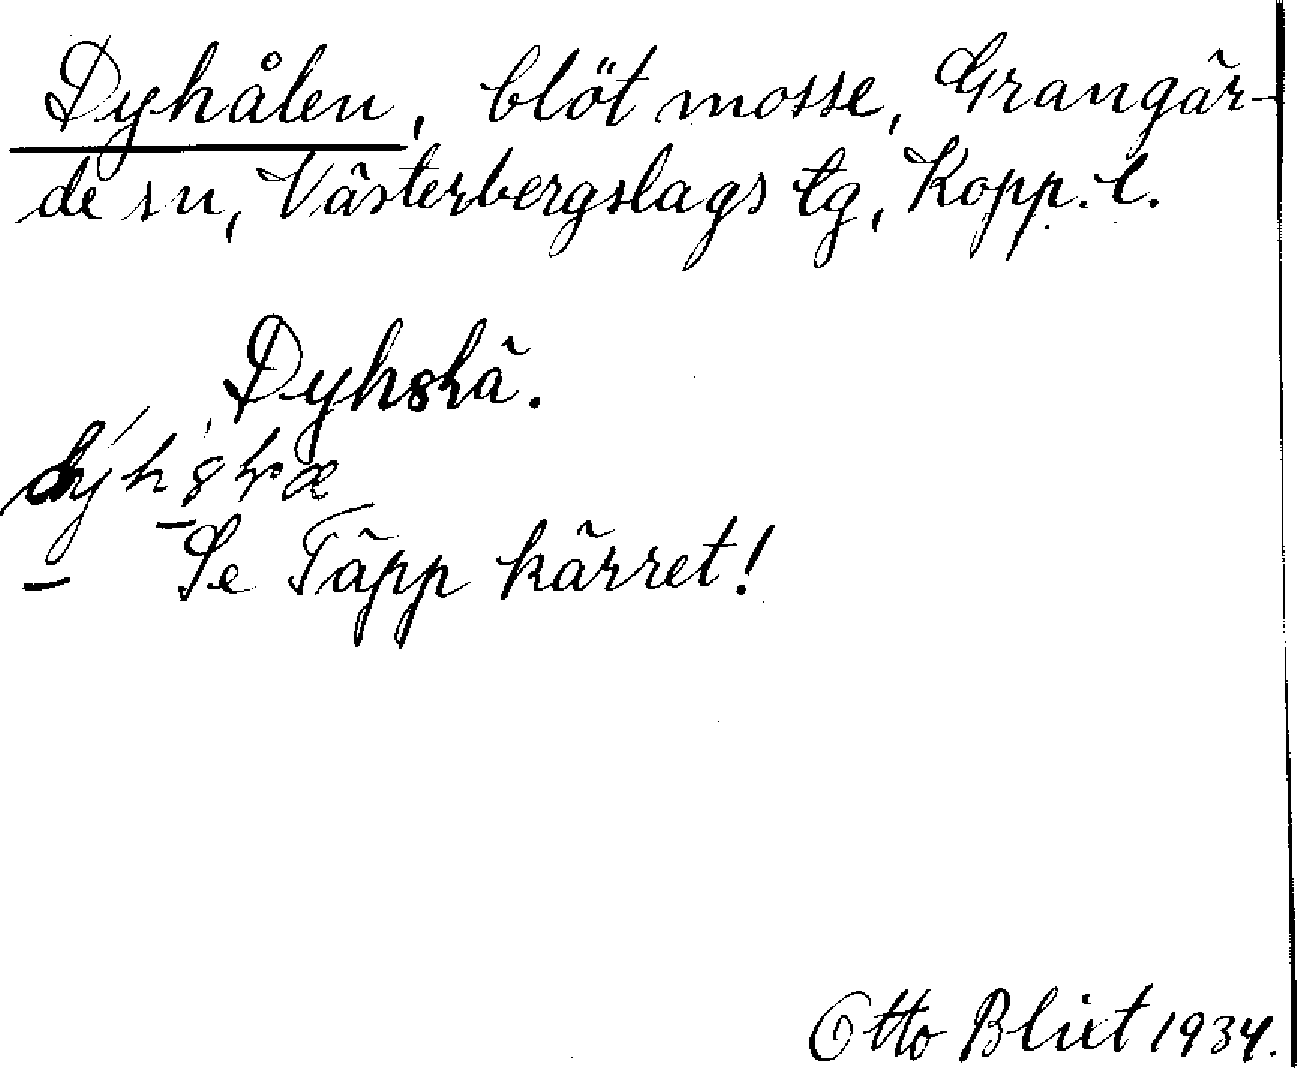 Dyhålen, blöt mosse, Grangär-
de sn, Västerbergslags tg, Kopp. l.
Se Täpp kärret!
Otto Blixt 1934.